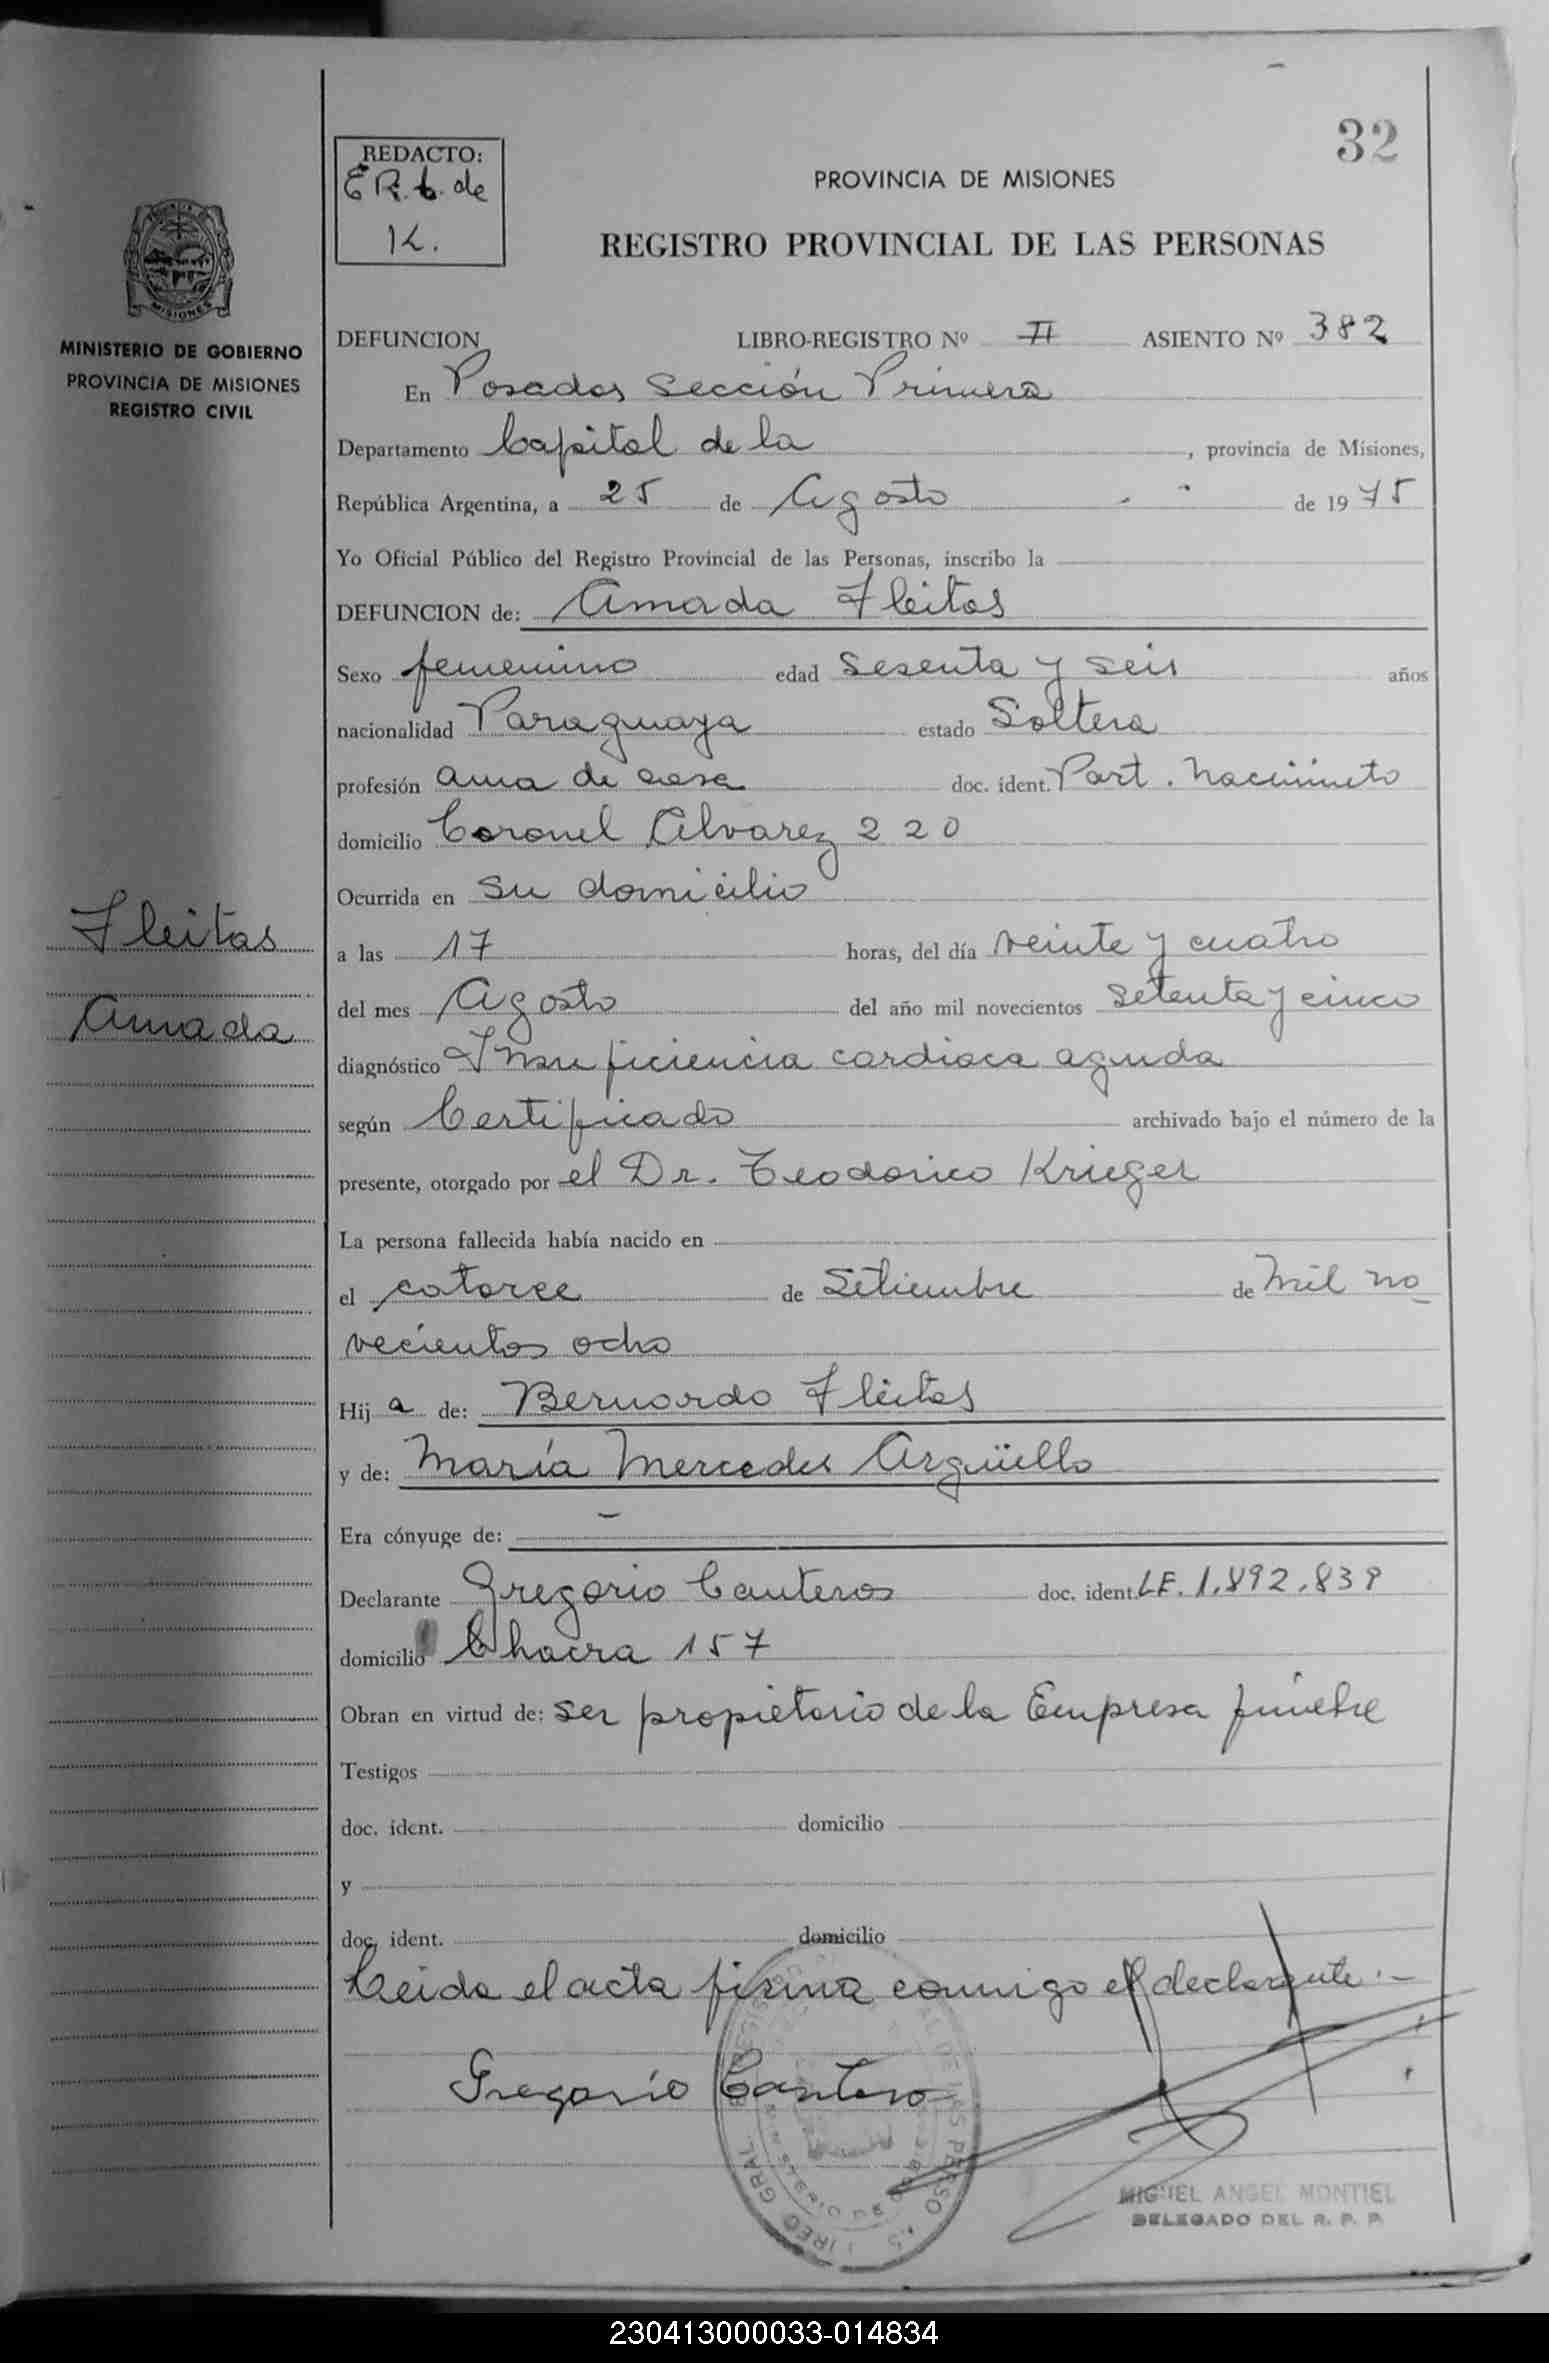 32
REDACTO:
E R. C. de
K.
PROVINCIA DE MISIONES
REGISTRO PROVINCIAL DE LAS PERSONAS
MISIONES
MINISTERIO DE GOBIERNO
PROVINCIA DE MISIONES
REGISTRO CIVIL
DEFUNCION LIBRO-REGISTRO Nº II ASIENTO Nº 382
En Posadas Sección Primera
Departamento Capital de la , provincia de Misiones,
República Argentina, a 25 de Agosto de 1975
Yo Oficial Público del Registro Provincial de las Personas, inscribo la
DEFUNCION de: Amada Fleitas
Sexo femenino edad Sesenta y seis años
nacionalidad Paraguaya estado Soltera
profesión ama de casa doc. ident. Part. Nacimineto
domicilio Coronel Alvarez 220
Ocurrida en su domicilio
Fleitas
Amada
a las 17 horas, del día veinte y cuatro
del mes Agosto del año mil novecientos setenta y cinco
diagnóstico Insuficiencia cardiaca aguda
según Certificado archivado bajo el número de la
presente, otorgado por el Dr. Teodorico Krieger
La persona fallecida había nacido en
el catorce de Setiembre de Mil no_
vecientos ocho
Hij a de: Bernardo Fleitas
y de: María Mercedes Argüello
Era cónyuge de: -
Declarante Gregorio Canteros doc. ident. LE. 1.892.839
domicilio Chacra 157
Obran en virtud de: ser propietario de la Empresa fúnebre
Testigos
doc. ident. domicilio
y
doc. ident. domicilio
Leida el acta firma conmigo el declarante.-
Gregorio Cantero
MIGUEL ANGEL MONTIEL
DELEGADO DEL R. P. P.
230413000033-014834